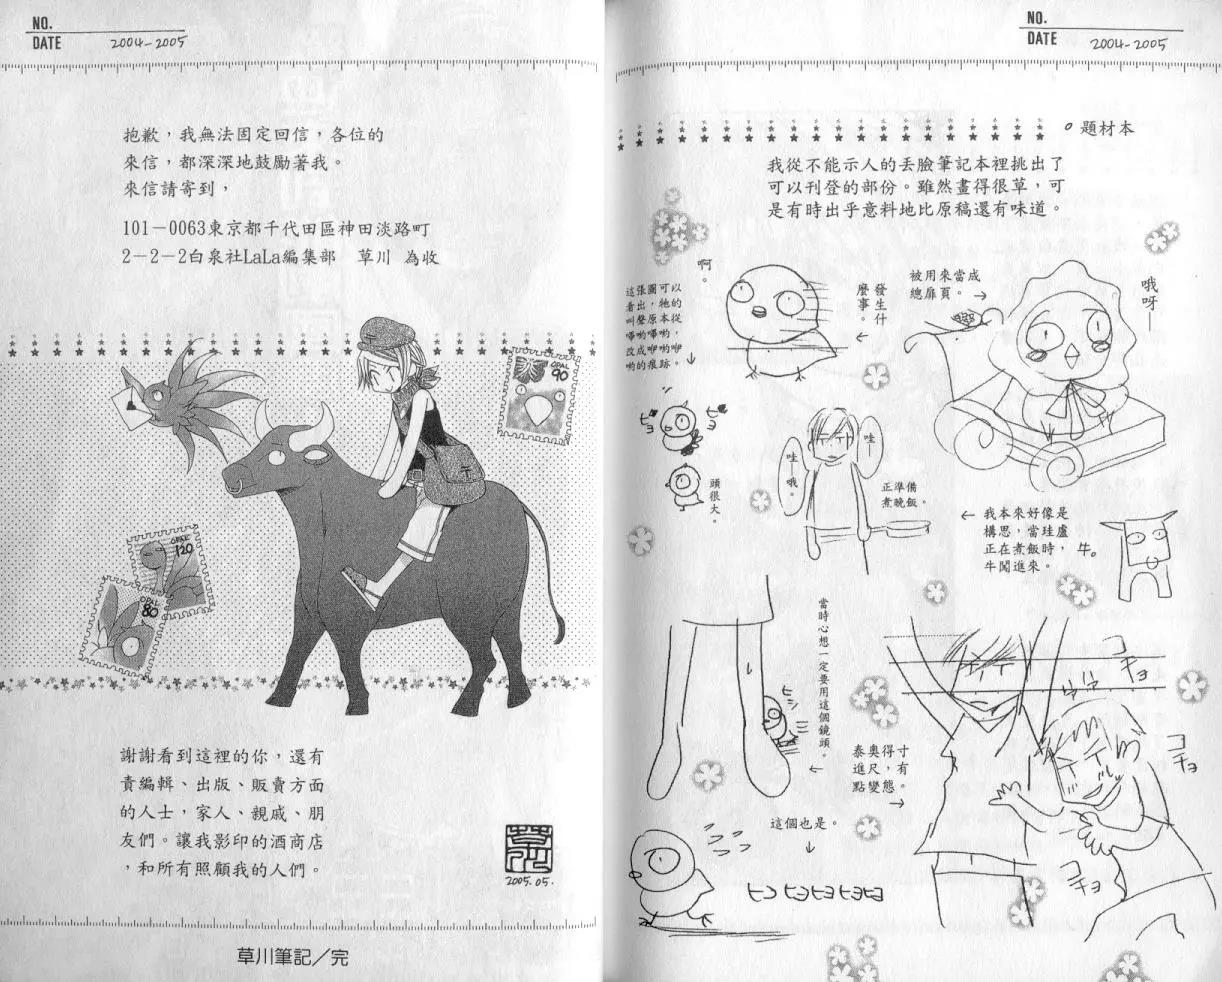 NO.
DATE 2004-2005
。題材本
我從不能示人的丟臉筆記本裡挑出了
可以刊登的部份。雖然畫得很草，可
是有時出乎意料地比原稿還有味道。
哦呀—
被用來當成
總扉頁。→
發生什
麼事。
←
啊。
這張圖可以
看出，牠的
叫聲原本從
嗶喲嗶喲，
改成咿喲咿
喲的痕跡。
↓
頭很大。
哇—
哇—哦。
正準備
煮晚飯。
← 我本來好像是
構思，當珪盧
正在煮飯時，
牛闖進來。
牛。
當時心想一定要用這個鏡頭。
←
ヒシ
泰奧得寸
進尺，有
點變態。
→
コチョ
コチョ
コチョ
這個也是。
↓
NO.
DATE 2004-2005
抱歉，我無法固定回信，各位的
來信，都深深地鼓勵著我。
來信請寄到，
101－0063東京都千代田區神田淡路町
2－2－2白泉社LaLa編集部　草川 為收
OPAL
90
OPAL
120
OPAL
80
謝謝看到這裡的你，還有
責編輯、出版、販賣方面
的人士，家人、親戚、朋
友們。讓我影印的酒商店
，和所有照顧我的人們。
草川
2005.05.
草川筆記／完